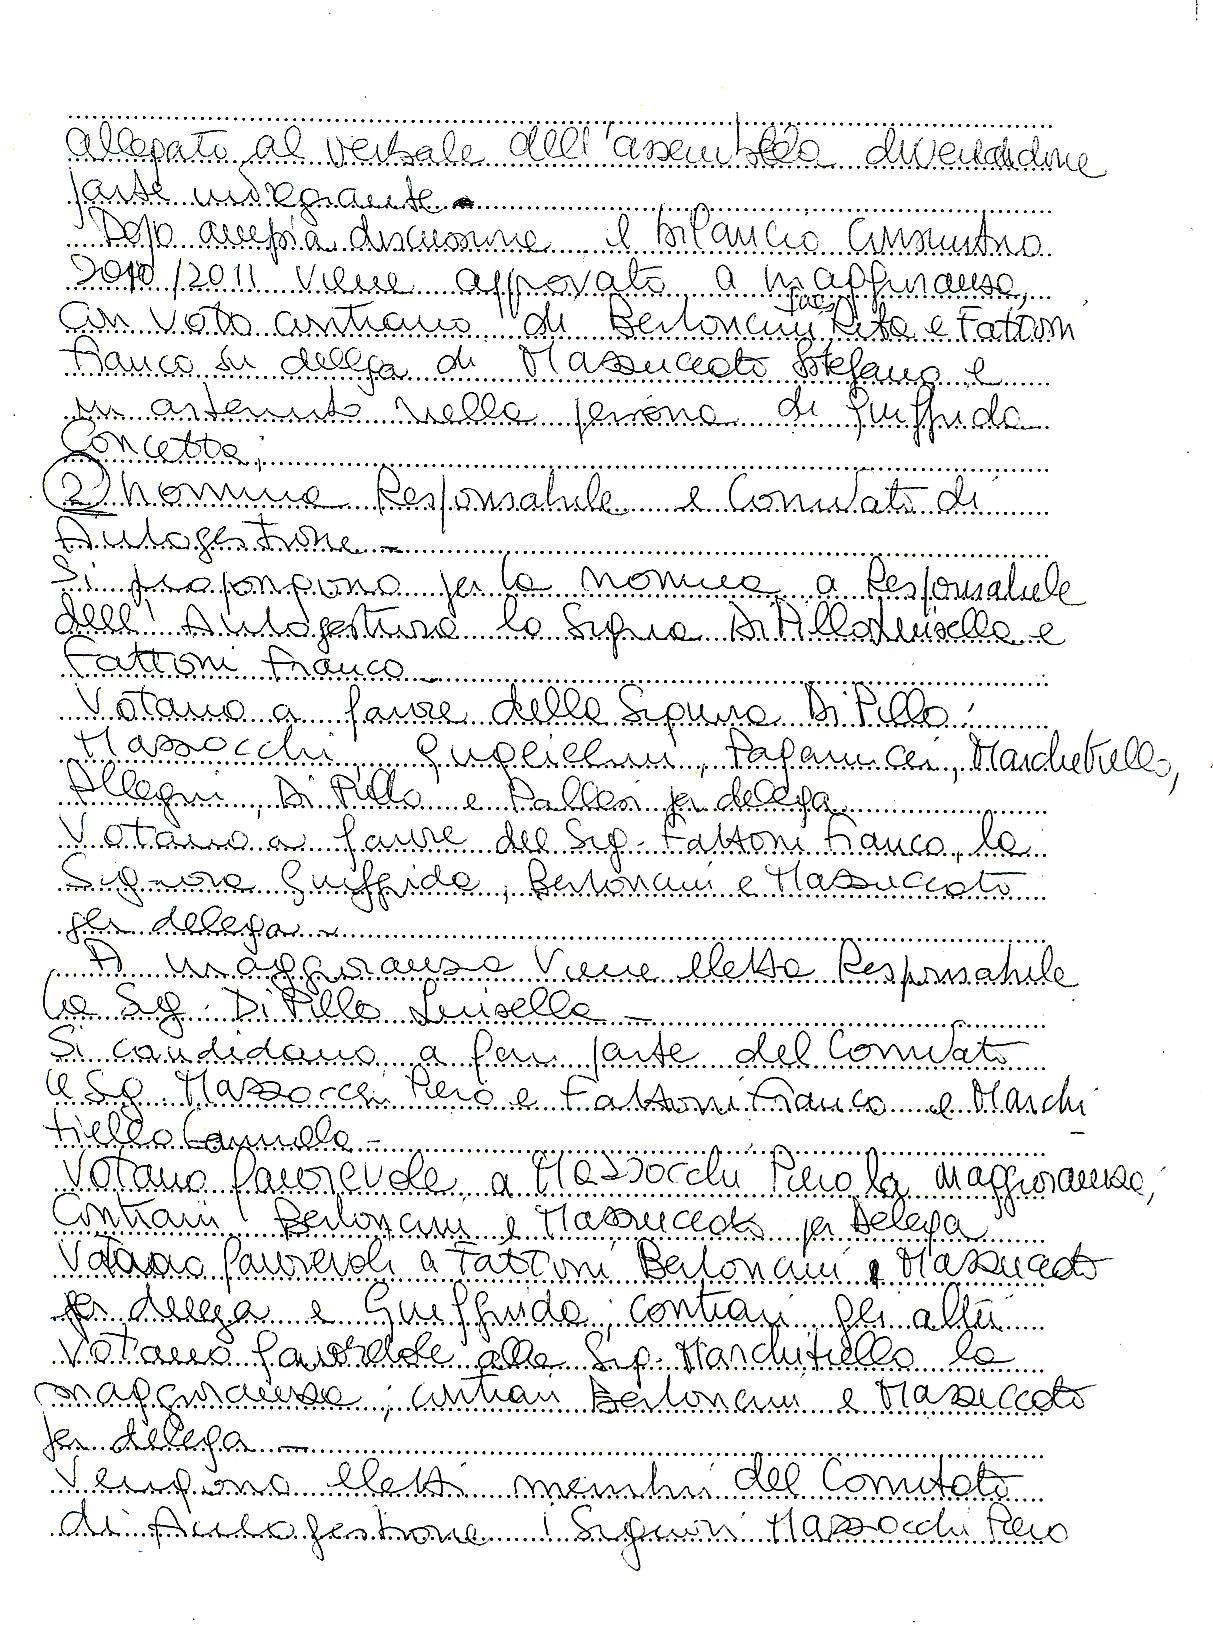 allegato al verbale dell'assemblea divenendone
parte integrante.
Dopo ampia discussione il bilancio consuntivo
2010/2011 viene approvato a maggioranza,
con voto contrario di Bertoncini Rita e Fattoni
Franco su delega di Massuccato Stefano e
un astenuto nella persona di Giuffrida
Concetta;
2) Nomina Responsabile e Comitato di
Autogestione -
Si propongono per la nomina a Responsabile
dell'Autogestione la Signora Di Pillo Luisella e
Fattoni Franco -
Votano a favore della Signora Di Pillo:
Massocchi, Guglielmi, Paganucci, Marchetiello,
Allegri, Di Pillo e Pallesi per delega
Votano a favore del Sig. Fattoni Franco, la
Signora Giuffrida, Bertoncini e Massuccato
per delega -
A maggioranza viene eletta Responsabile
la Sig. Di Pillo Luisella -
Si candidano a far parte del Comitato
il Sig. Massocchi Piero e Fattoni Franco e Marchi
tiello Carmela -
Votano favorevole a Massocchi Piero la maggioranza,
Contrari Bertoncini e Massuccato per Delega
Votano favorevoli a Fattoni Bertoncini e Massuccato
per delega e Giuffrida; contrari gli altri
Votano favorevole alla Sig. Marchitiello la
maggioranza; contrari Bertoncini e Massuccato
per delega -
Vengono eletti membri del Comitato
di Autogestione i Signori Massocchi Piero